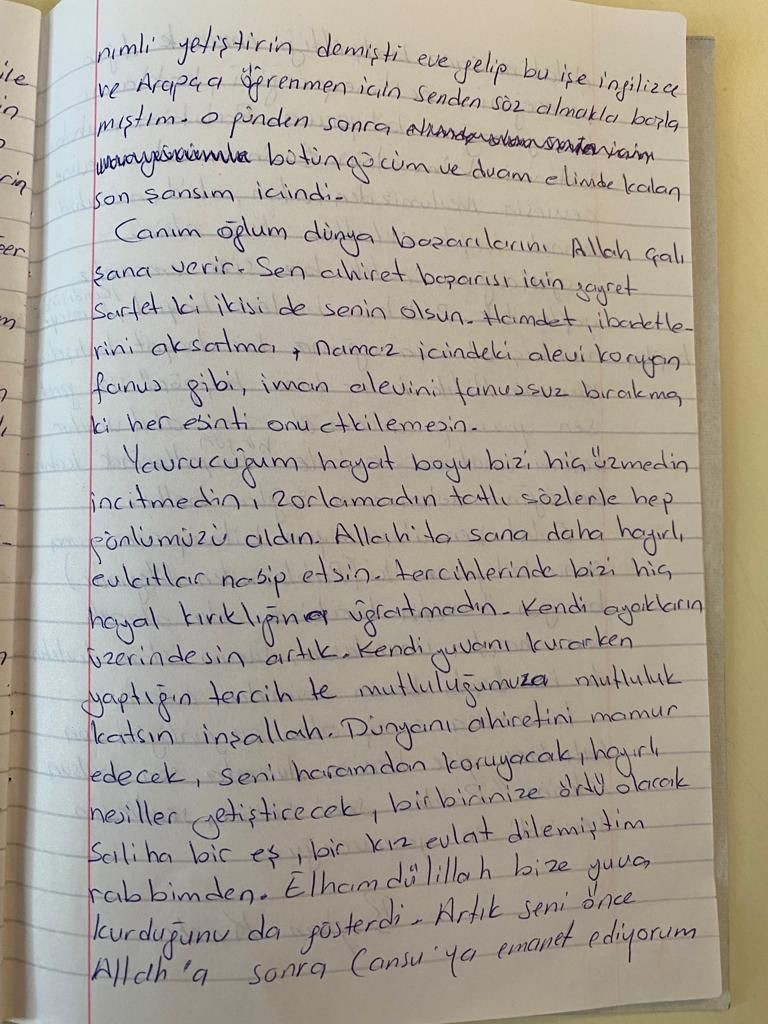 ile
in
rin
nımlı yetiştirin demişti eve gelip bu işe ingilizce
ve Arapça öğrenmen için senden söz almakla başla
mıştım. O günden sonra
bütün gücüm ve duam elimde kalan
son şansım içindi.
Canım oğlum dünya başarılarını Allah çalı
şana verir. Sen ahiret başarısı için gayret
Sarfet ki ikisi de senin olsun. Hamdet, ibadetle-
rini aksatma, namaz içindeki alevi koruyan
fanus gibi, iman alevini fanussuz bırakma
ki her esinti onu etkilemesin.
Yavrucuğum hayat boyu bizi hiç üzmedin
incitmedin, zorlamadın tatlı sözlerle hep
gönlümüzü aldın. Allah'ta sana daha hayırlı
evlatlar nasip etsin. tercihlerinde bizi hiç
hayal kırıklığına uğratmadın. Kendi ayakların
üzerindesin artık. Kendi yuvanı kurarken
yaptığın tercih te mutluluğumuza mutluluk
katsın inşallah. Dünyanı ahiretini mamur
edecek, seni haramdan koruyacak, hayırlı
nesiller yetiştirecek, birbirinize örtü olacak
Saliha bir eş, bir kız evlat dilemiştim
rabbimden. Elhamdülillah bize yuva
kurduğunu da gösterdi. Artık seni önce
Allah'a sonra Cansu'ya emanet ediyorum